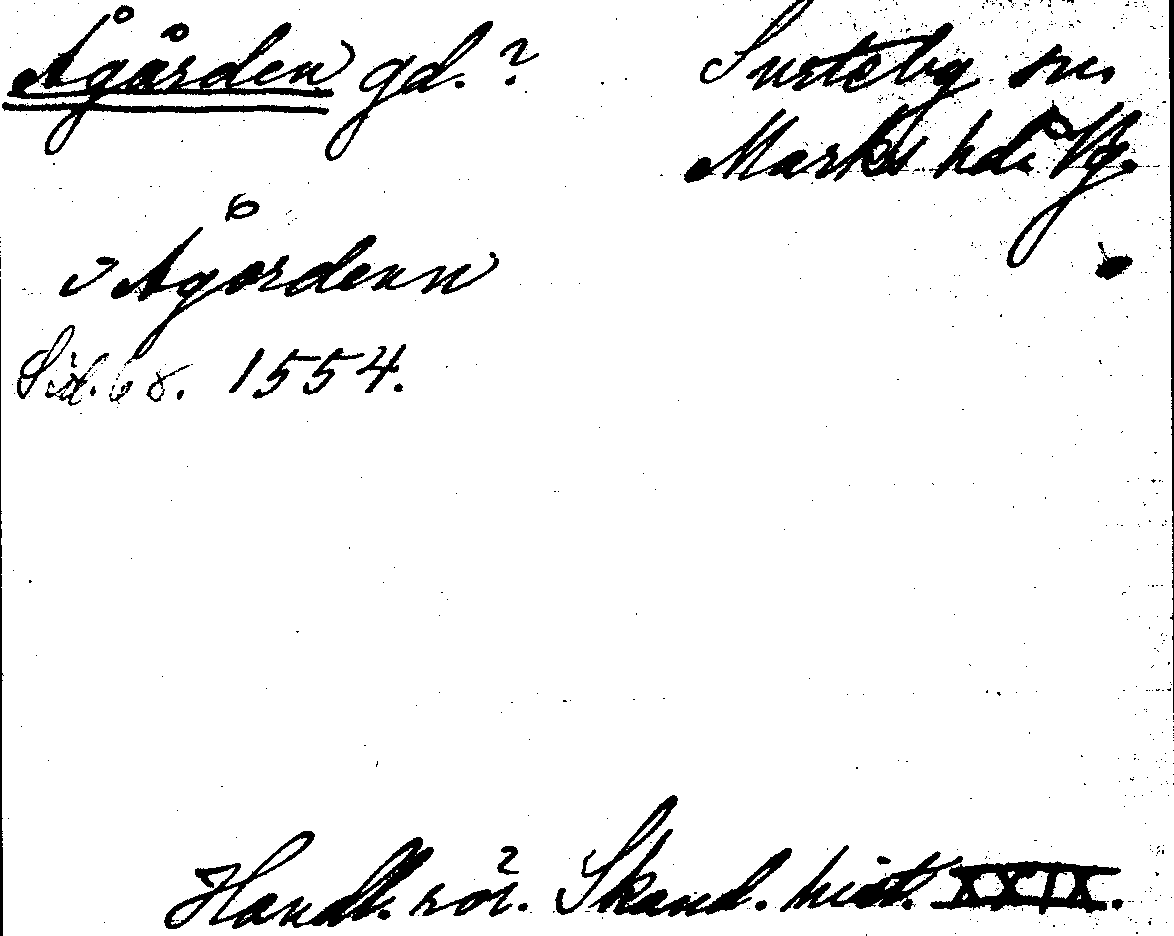 Ågården gd.?
Surteby sn.
Marks hd. Vg.
i Ågårdenn
Sid. 68. 1554.
Handl. rör. Skand. hist. XXIX.